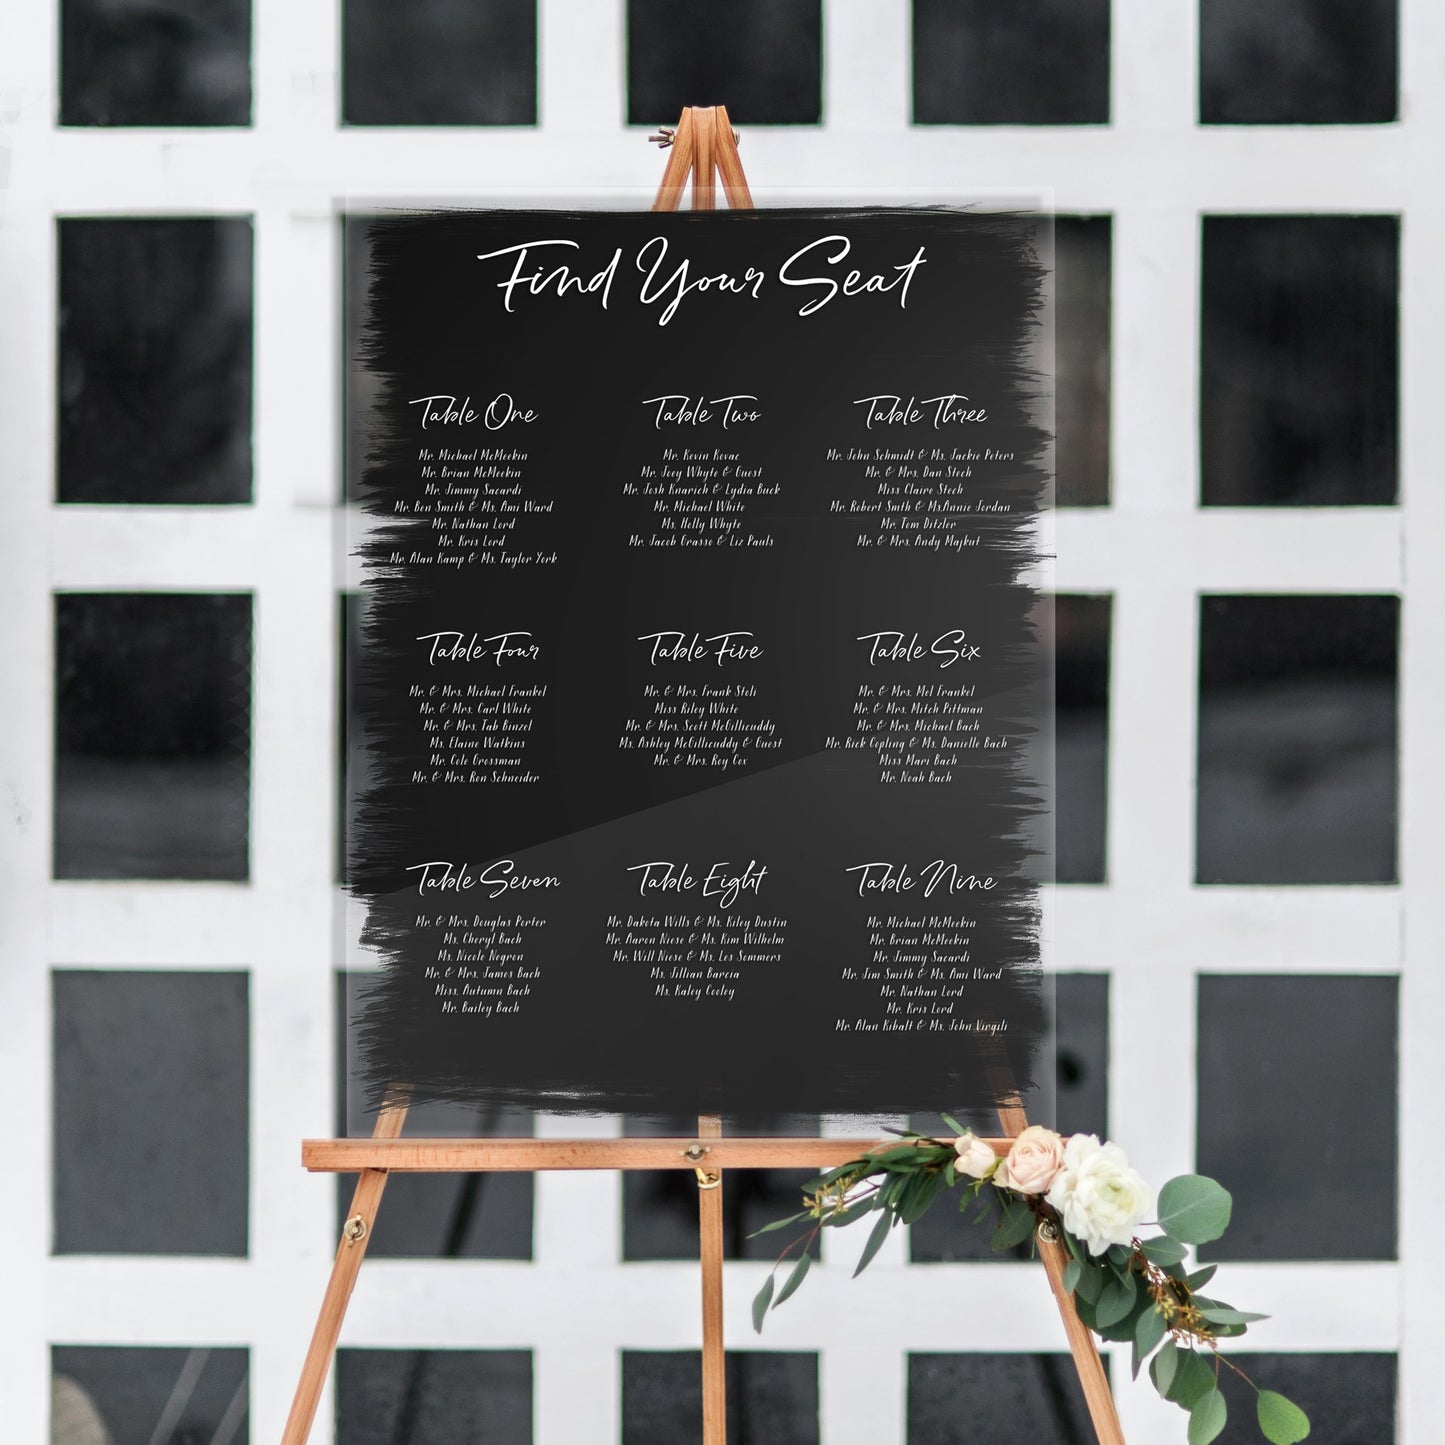 Find Your Seat
Table One
Mr. Michael McMeekin
Mr. Brian McMeekin
Mr. Jimmy Sacardi
Mr. Ben Smith & Ms. Ami Ward
Mr. Nathan Lord
Mr. Kris Lord
Mr. Alan Kamp & Ms. Taylor York
Table Two
Mr. Kevin Kovac
Mr. Joey Whyte & Guest
Mr. Josh Knarich & Lydia Buck
Mr. Michael White
Ms. Holly Whyte
Mr. Jacob Grasso & Liz Pauls
Table Three
Mr. John Schmidt & Ms. Jackie Peters
Mr. & Mrs. Dan Stech
Miss Claire Stech
Mr. Robert Smth & Ms.Annie Jordan
Mr. Tom Ditzler
Mr. & Mrs. Andy Majkut
Table Four
Mr. & Mrs. Michael Frankel
Mr. & Mrs. Carl White
Mr. & Mrs. Tab Binzel
Ms. Elaine Watkins
Mr. Cole Grossman
Mr. & Mrs. Ron Schneider
Table Five
Mr. & Mrs. Frank Stoli
Miss Riley White
Mr. & Mrs. Scott McGillicuddy
Ms. Ashley McGillicuddy & Guest
Mr. & Mrs. Roy Cox
Table Six
Mr. & Mrs. Mel Frankel
Mr. & Mrs. Mitch Pittman
Mr. & Mrs. Michael Bach
Mr. Rick Copling & Ms. Danielle Bach
Miss Mari Bach
Mr. Noah Bach
Table Seven
Mr. & Mrs. Douglas Porter
Ms. Cheryl Bach
Ms. Nicole Negron
Mr. & Mrs. James Bach
Miss. Autumn Bach
Mr. Bailey Bach
Table Eight
Mr. Dakota Wills & Ms. Kiley Dustin
Mr. Aaron Niese & Ms. Kim Wilhelm
Mr. Will Niese & Ms. Les Sommers
Ms. Jillian Barcia
Ms. Kaley Cooley
Table Nine
Mr. Michael McMeekin
Mr. Brian McMeekin
Mr. Jimmy Sacardi
Mr. Jim Smith & Ms. Ami Ward
Mr. Nathan Lord
Mr. Kris Lord
Mr. Alan Kibalt & Ms. John Virgili